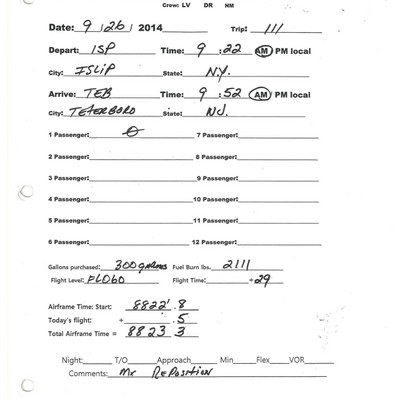 Crew: LV DR NM
Date: 9 / 26 / 2014 Trip: 111
Depart: ISP Time: 9 : 22 AM PM local
City: ISLIP State: N.Y.
Arrive: TEB Time: 9 : 52 AM PM local
City: TETERBORO State: NJ.
1 Passenger: 0 7 Passenger:
2 Passenger: 8 Passenger:
3 Passenger: 9 Passenger:
4 Passenger: 10 Passenger:
5 Passenger: 11 Passenger:
6 Passenger: 12 Passenger:
Gallons purchased: 300 Fuel Burn lbs. 2111
Flight Level: FL060 Flight Time: = 29
Airframe Time: Start: 8822 . 8
Today's flight: + . 5
Total Airframe Time = 8823 3
Night: T/O Approach Min Flex VOR
Comments: MX REPOSITION